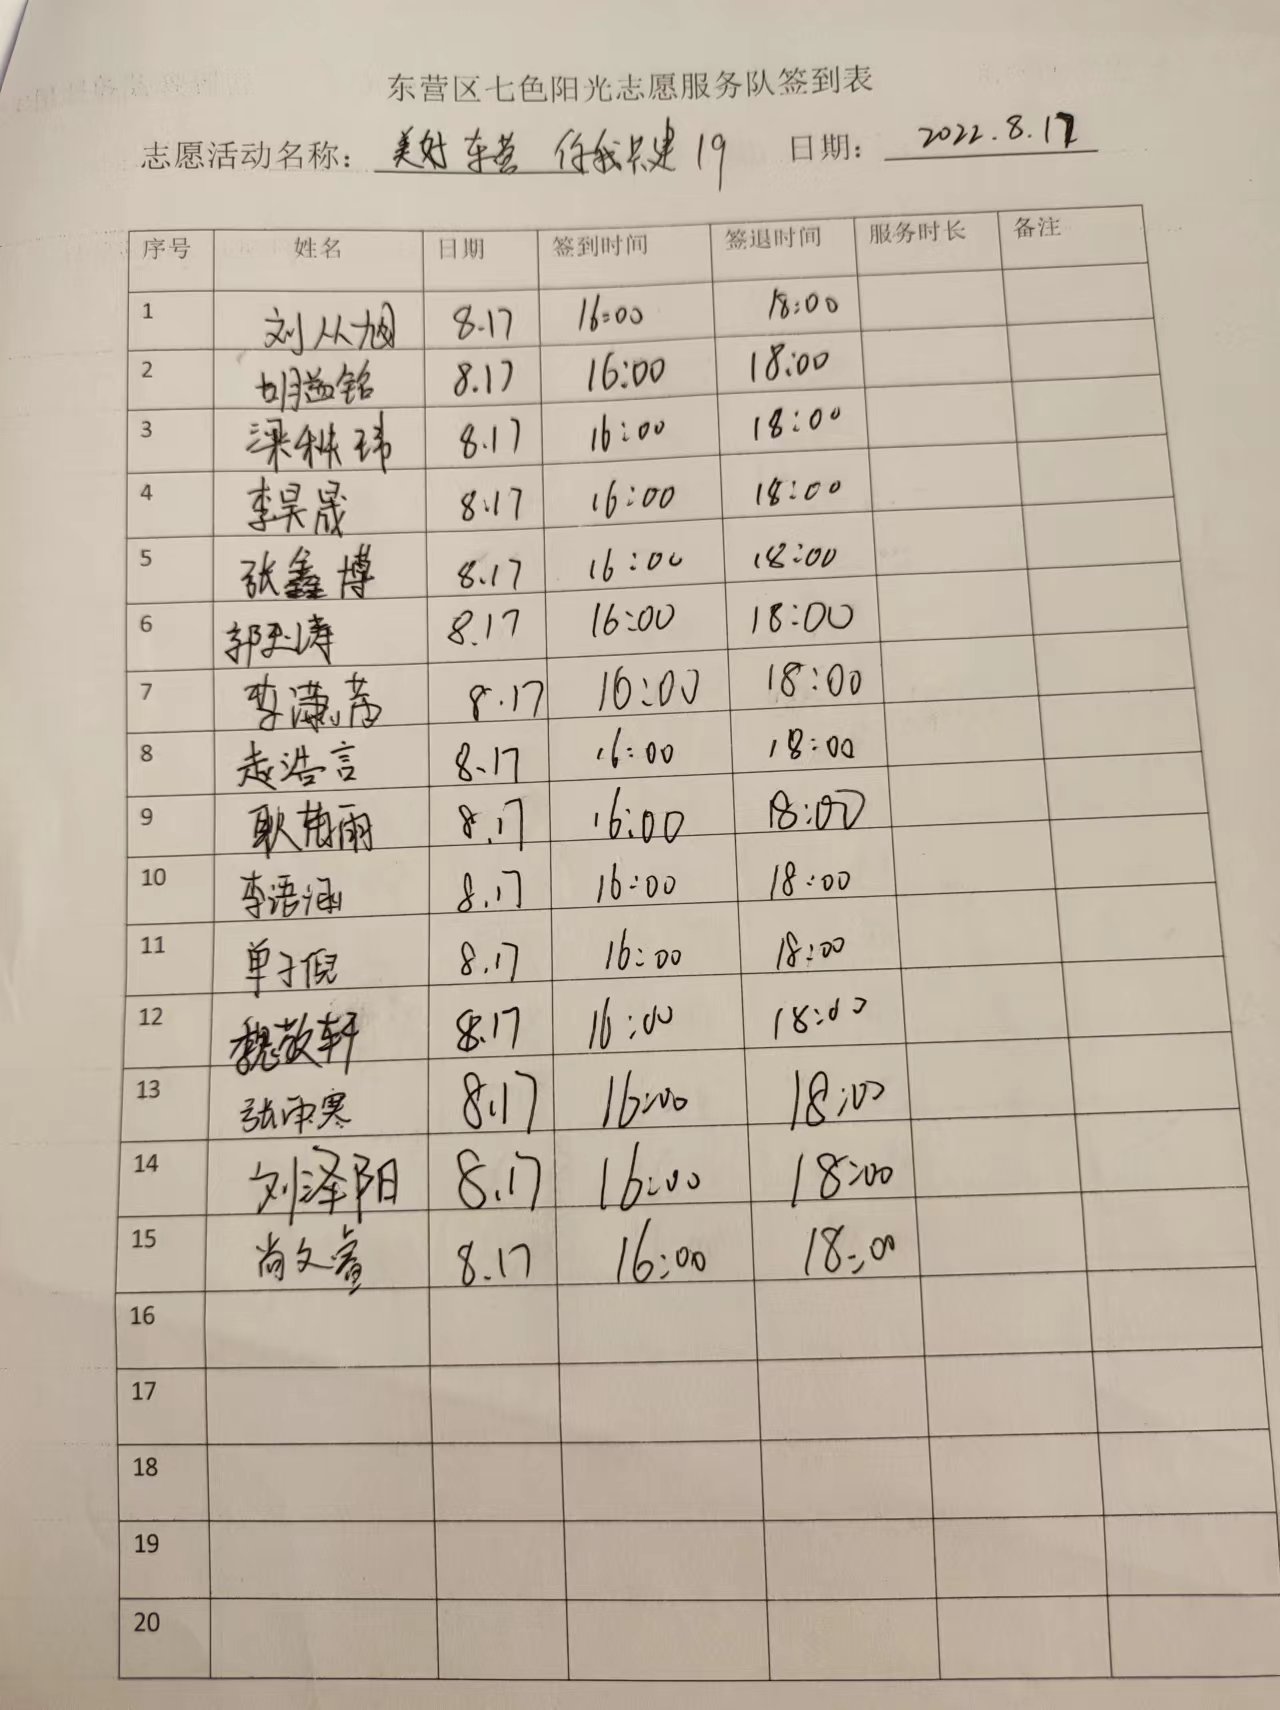 东营区七色阳光志愿服务队签到表
志愿活动名称： 美好东营 你我共建19 日期： 2022.8.17
序号 姓名 日期 签到时间 签退时间 服务时长 备注
1 刘从旭 8.17 16:00 18:00
2 胡益铭 8.17 16:00 18:00
3 梁秩玮 8.17 16:00 18:00
4 李昊晟 8.17 16:00 18:00
5 张鑫博 8.17 16:00 18:00
6 郭玉涛 8.17 16:00 18:00
7 李潇 8.17 16:00 18:00
8 赵浩言 8.17 16:00 18:00
9 耿雨 8.17 16:00 18:00
10 李语涵 8.17 16:00 18:00
11 单子倪 8.17 16:00 18:00
12 魏敬轩 8.17 16:00 18:00
13 张雨寒 8.17 16:00 18:00
14 刘泽阳 8.17 16:00 18:00
15 尚文睿 8.17 16:00 18:00
16
17
18
19
20